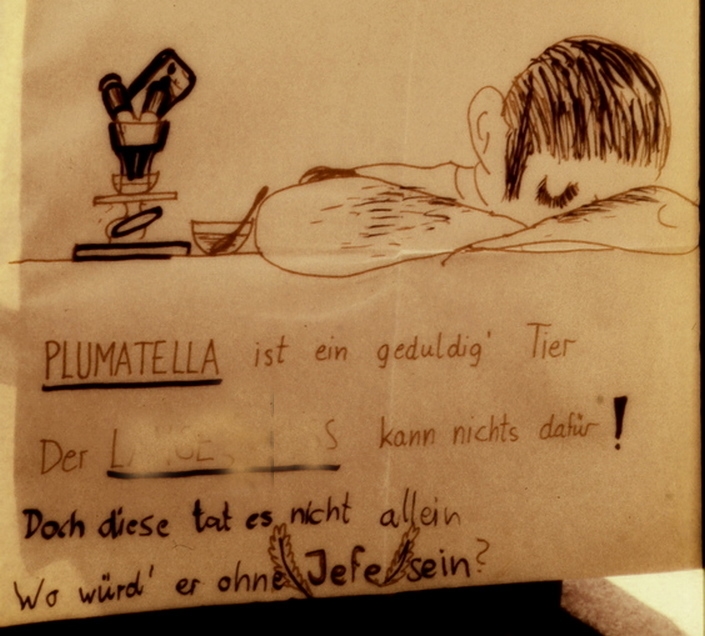 PLUMATELLA ist ein geduldig' Tier
Der kann nichts dafür!
Doch diese tat es nicht allein
Wo würd' er ohne Jefe sein?